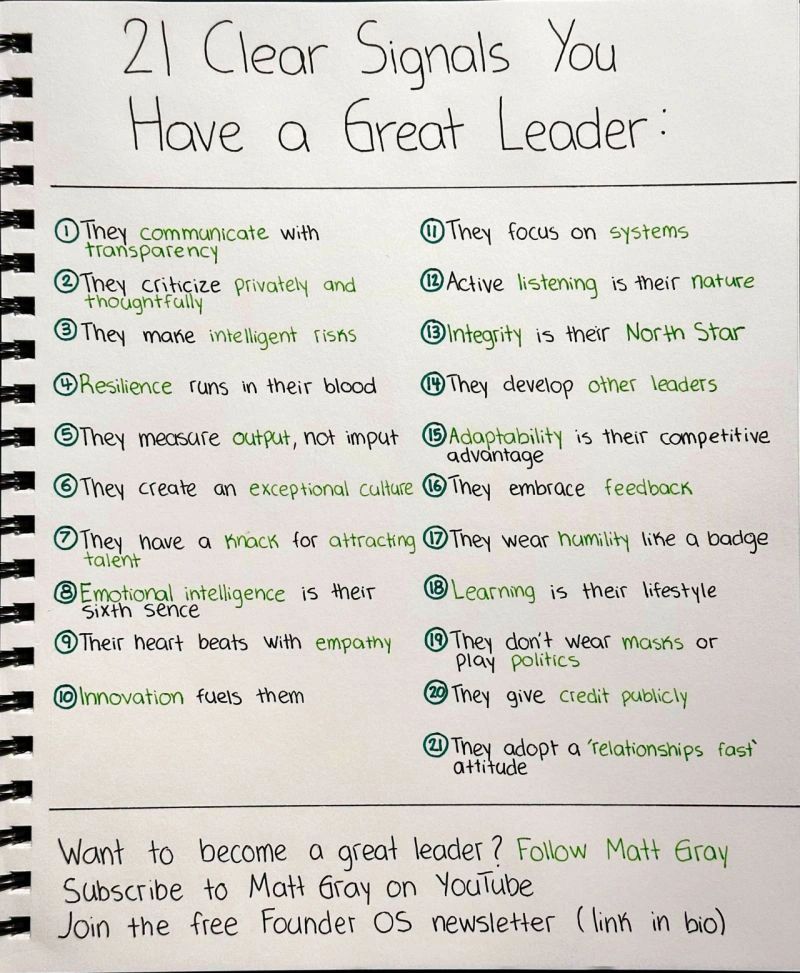 21 Clear Signals You
Have a Great Leader:
① They communicate with
transparency
② They criticize privately and
thoughtfully
③ They make intelligent risks
④ Resilience runs in their blood
⑤ They measure output, not imput
⑥ They create an exceptional culture
⑦ They have a knack for attracting
talent
⑧ Emotional intelligence is their
sixth sence
⑨ Their heart beats with empathy
⑩ Innovation fuels them
⑪ They focus on systems
⑫ Active listening is their nature
⑬ Integrity is their North Star
⑭ They develop other leaders
⑮ Adaptability is their competitive
advantage
⑯ They embrace feedback
⑰ They wear humility like a badge
⑱ Learning is their lifestyle
⑲ They don't wear masks or
play politics
⑳ They give credit publicly
㉑ They adopt a 'relationships fast'
attitude
Want to become a great leader? Follow Matt Gray
Subscribe to Matt Gray on YouTube
Join the free Founder OS newsletter (link in bio)